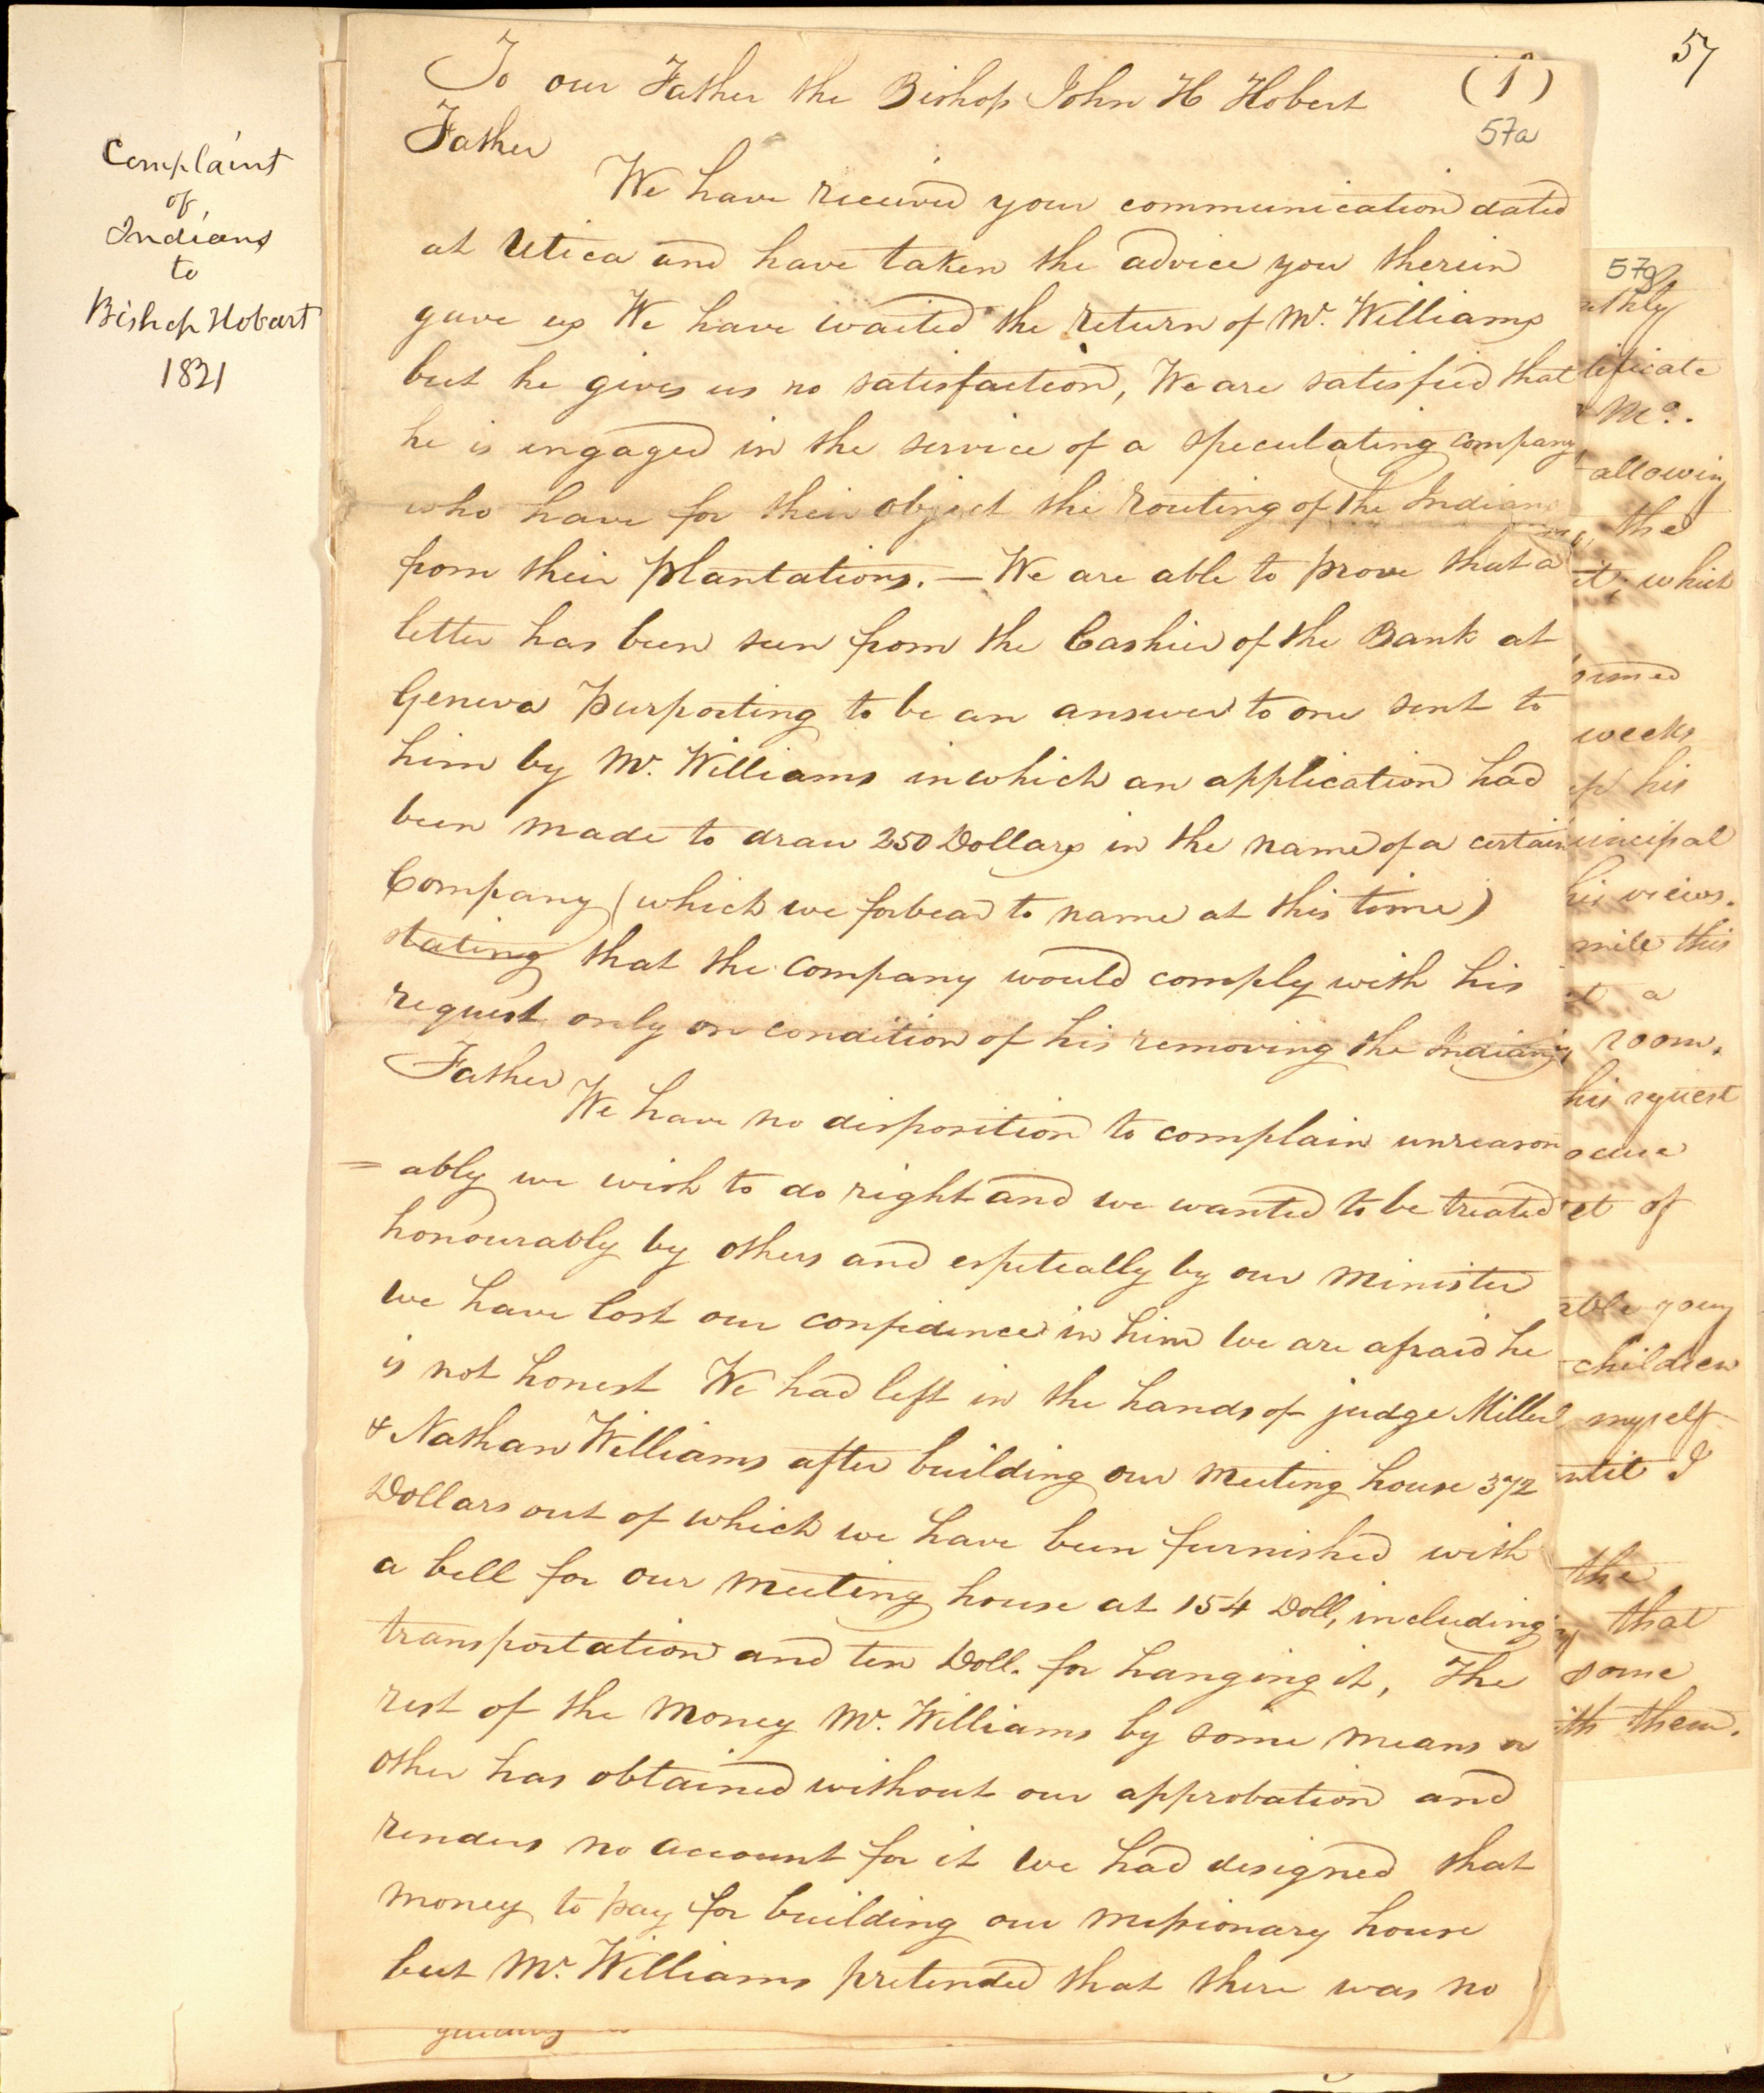 57
Complaint
of
Indians
to
Bishop Hobart
1821
(1)
57a
To our Father the Bishop John H Hobert
Father
We have received your communication dated
at Utica and have taken the advice you therein
gave us We have waited the return of Mr. Williams
but he gives us no satisfaction, We are satisfied that
he is engaged in the service of a speculating company
who have for their object the routing of the Indians
from their plantations. — We are able to prove that a
letter has been seen from the Cashier of the Bank at
Geneva purporting to be an answer to one sent to
him by Mr. Williams in which an application had
been made to draw 250 Dollars in the name of a certain
Company (which we forbear to name at this time)
stating that the company would comply with his
request only on condition of his removing the Indians
Father
We have no disposition to complain unreason
= ably we wish to do right and we wanted to be treated
honourably by others and espetically by our minister
We have lost our confidence in him We are afraid he
is not honest We had left in the hands of judge Miller
& Nathan Williams after building our meeting house 372
Dollars out of which we have been furnished with
a bell for our meeting house at 154 Doll, including
transportation and ten Doll. for hanging it, The
rest of the money Mr. Williams by some means or
other has obtained without our approbation and
renders no account for it We had designed that
money to pay for building our missionary house
but Mr. Williams pretended that there was no
57g
tificate
Mo.
allowing
the
it, which
weeks
his
incipal
his views.
this
a
room.
his request
et of
able young
children
myself
until I
the
that
some
ith them.